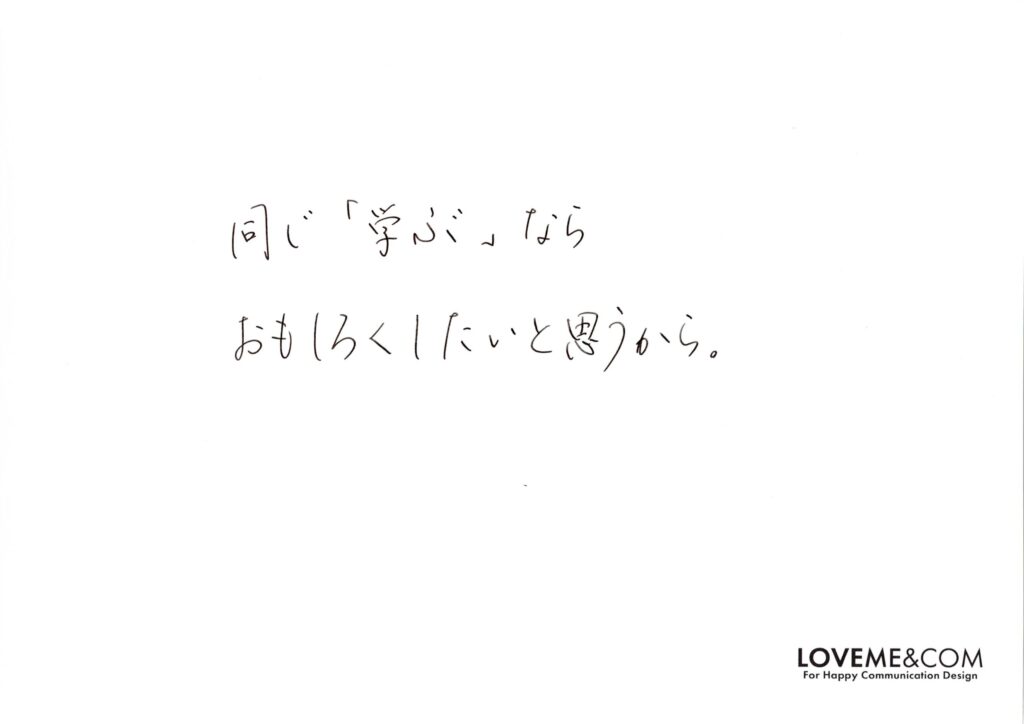 同じ「学ぶ」なら
おもしろくしたいと思うから。
LOVEME&COM
For Happy Communication Design